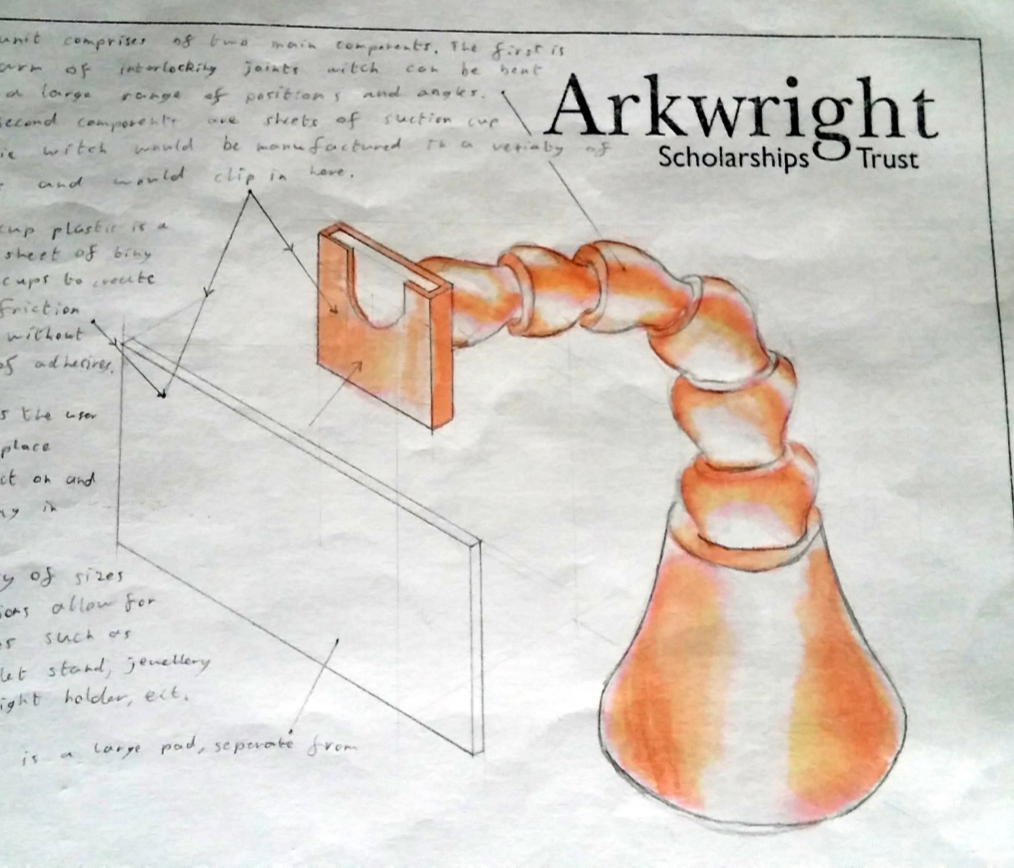 unit comprises of two main components. The first is
arm of interlocking joints witch can be bent
a large range of positions and angles.
second components are sheets of suction cup
witch would be manufactured in a veriaty of
and would clip in here.
Arkwright
Scholarships Trust
cup plastic is a
sheet of tiny
cups to create
friction
without
of adhesives.
the user
place
on and
in
of sizes
allow for
such as
stand, jewellery
holder, ect.
is a large pad, seperate from